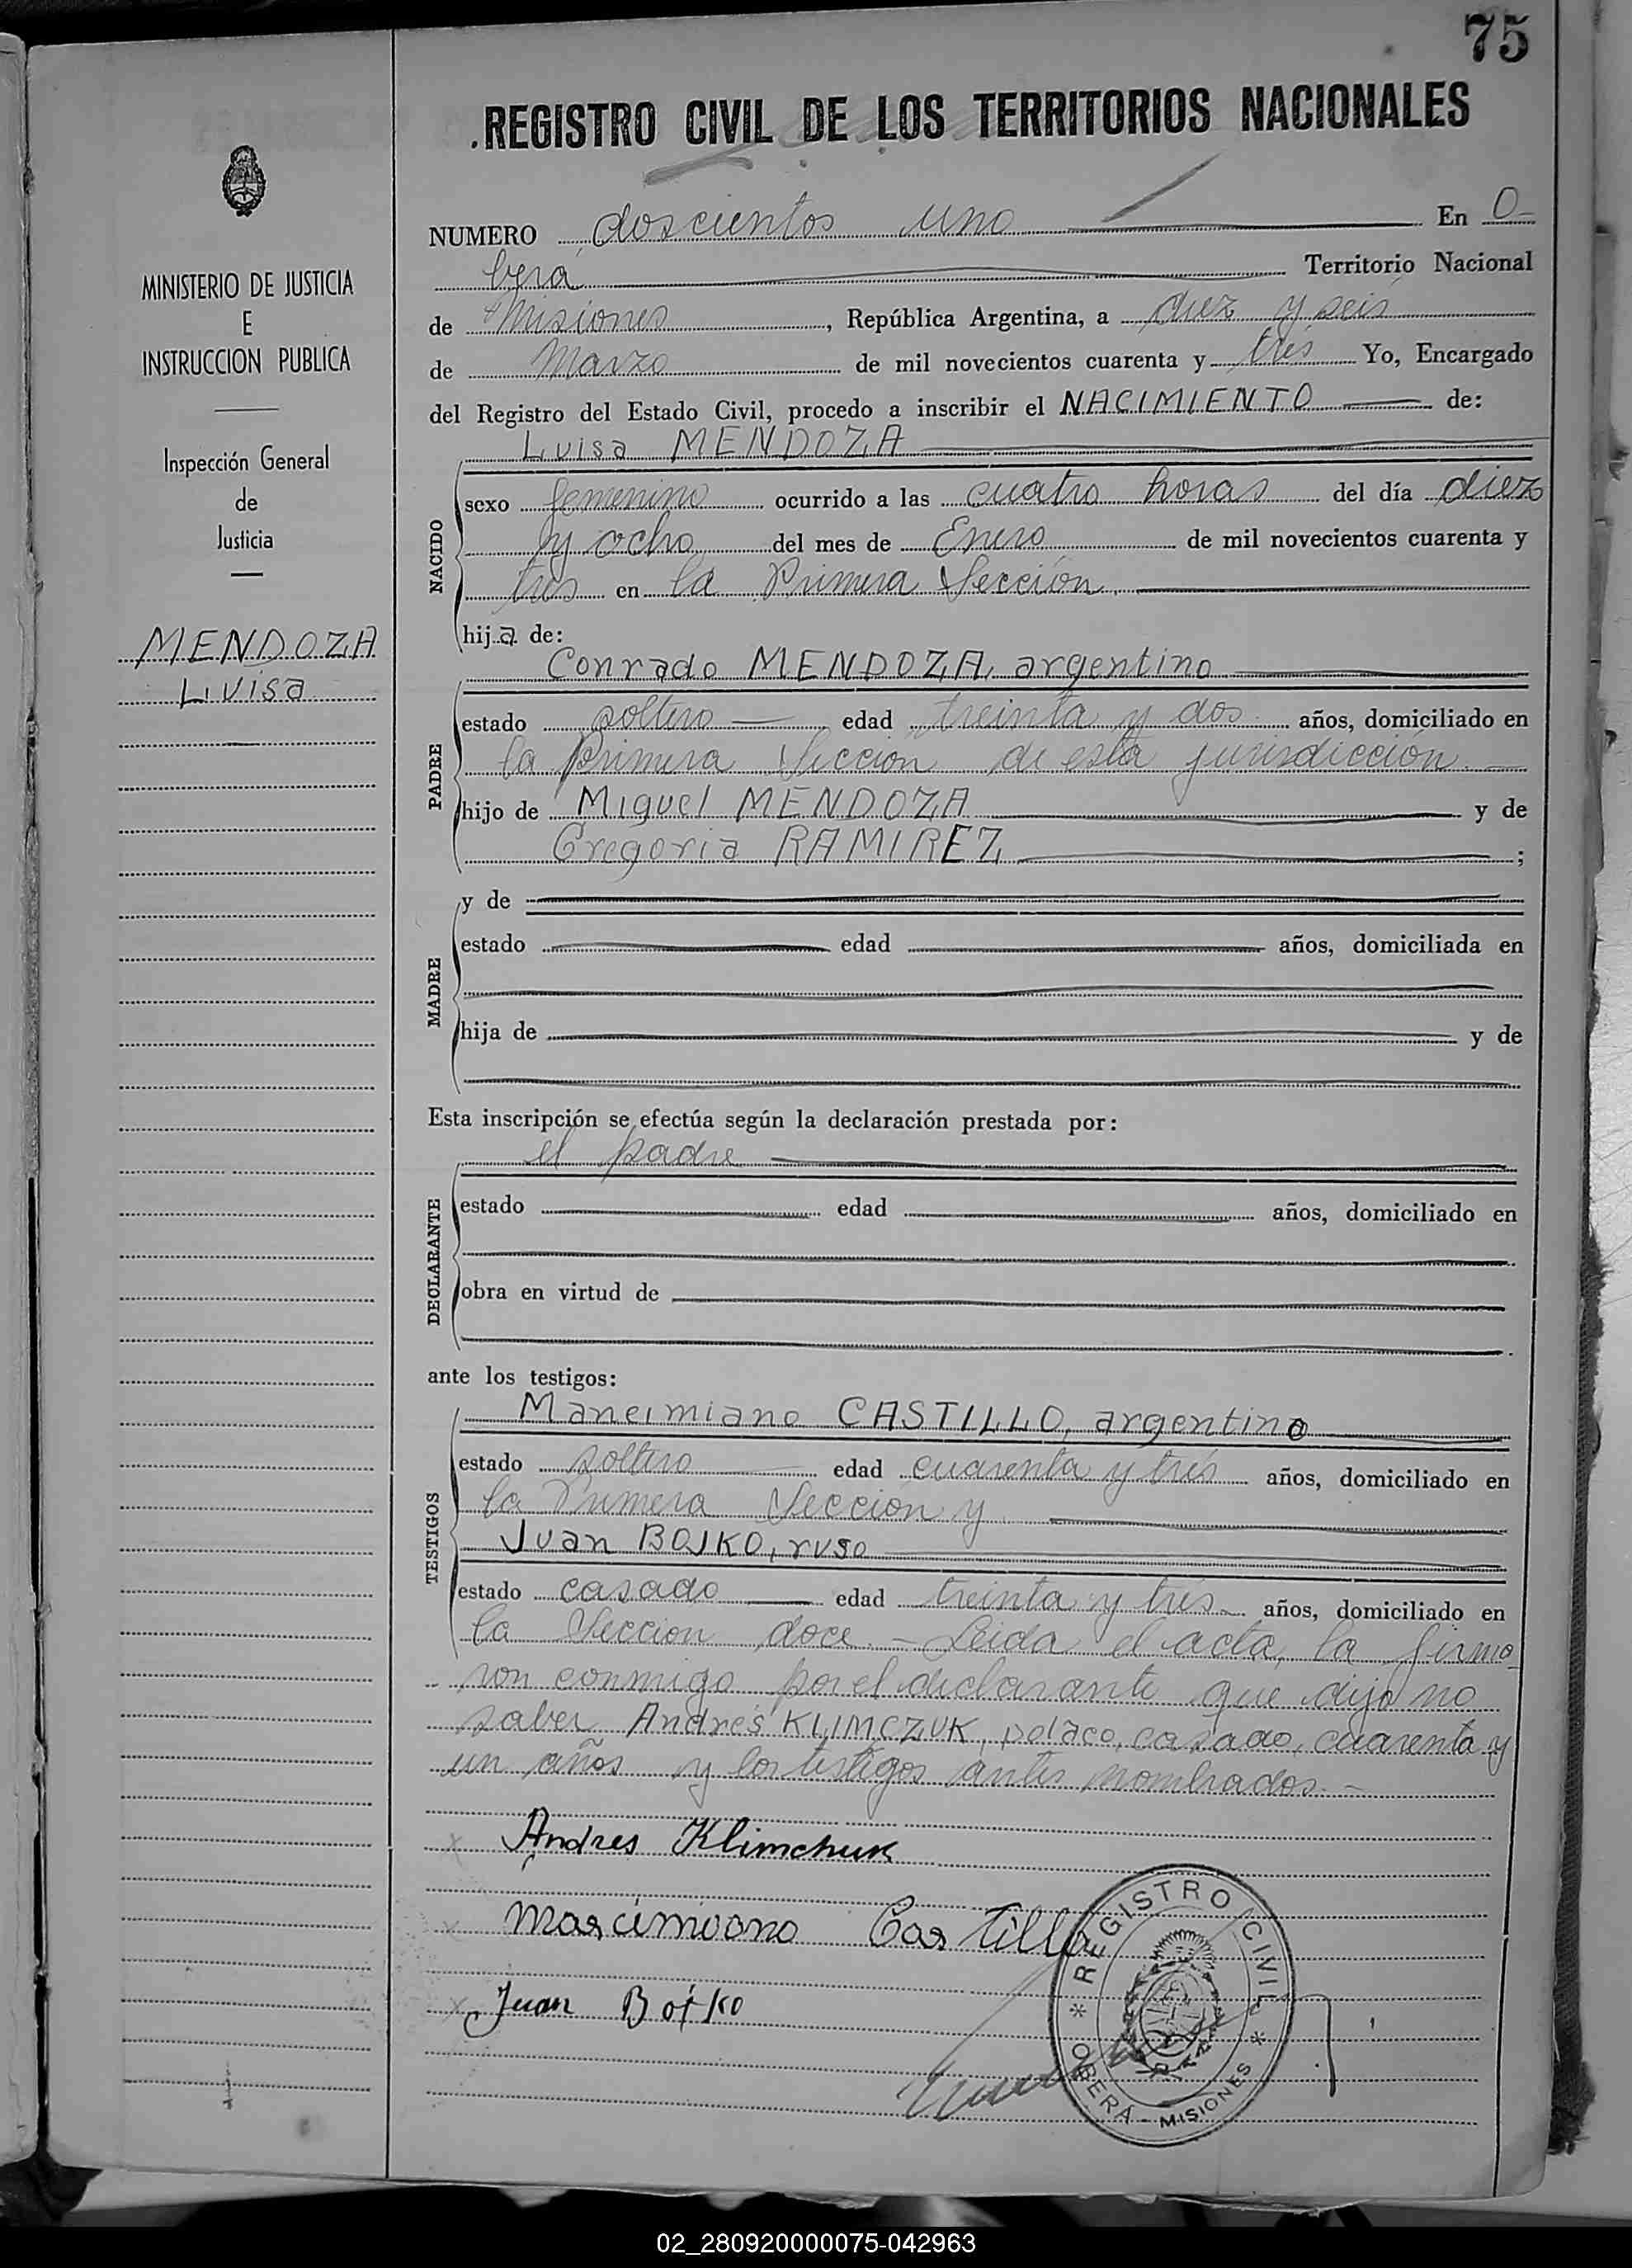 75
REGISTRO CIVIL DE LOS TERRITORIOS NACIONALES
MINISTERIO DE JUSTICIA
E
INSTRUCCION PUBLICA
Inspección General
de
Justicia
MENDOZA
Luisa
NUMERO doscientos uno En O-
berá Territorio Nacional
de Misiones, República Argentina, a diez y seis
de Marzo de mil novecientos cuarenta y trés Yo, Encargado
del Registro del Estado Civil, procedo a inscribir el NACIMIENTO de:
Luisa MENDOZA
NACIDO
sexo femenino ocurrido a las cuatro horas del día diez
y ocho del mes de Enero de mil novecientos cuarenta y
tres en la Primera Sección.
hija de:
Conrado MENDOZA, argentino
PADRE
estado soltero edad treinta y dos años, domiciliado en
la Primera Sección de esta jurisdicción.
hijo de Miguel MENDOZA y de
Gregoria RAMIREZ ;
MADRE
y de
estado edad años, domiciliada en
hija de y de
Esta inscripción se efectúa según la declaración prestada por:
el padre
DECLARANTE
estado edad años, domiciliado en
obra en virtud de
ante los testigos:
Maneimiano CASTILLO, argentino
TESTIGOS
estado soltero edad cuarenta y trés años, domiciliado en
la Primera Sección y
Juan BOJKO, ruso
estado casado edad treinta y trés años, domiciliado en
la Sección doce. - Leida el acta, la firma-
ron conmigo por el declarante que dijo no
saber Andrés KLIMCZUK, polaco, casado, cuarenta y
un años y los testigos antes nombrados. -
Andres Klimchuk
Marcimoano Castillo
Juan Boiko
REGISTRO CIVIL
OBERÁ - MISIONES
02_280920000075-042963